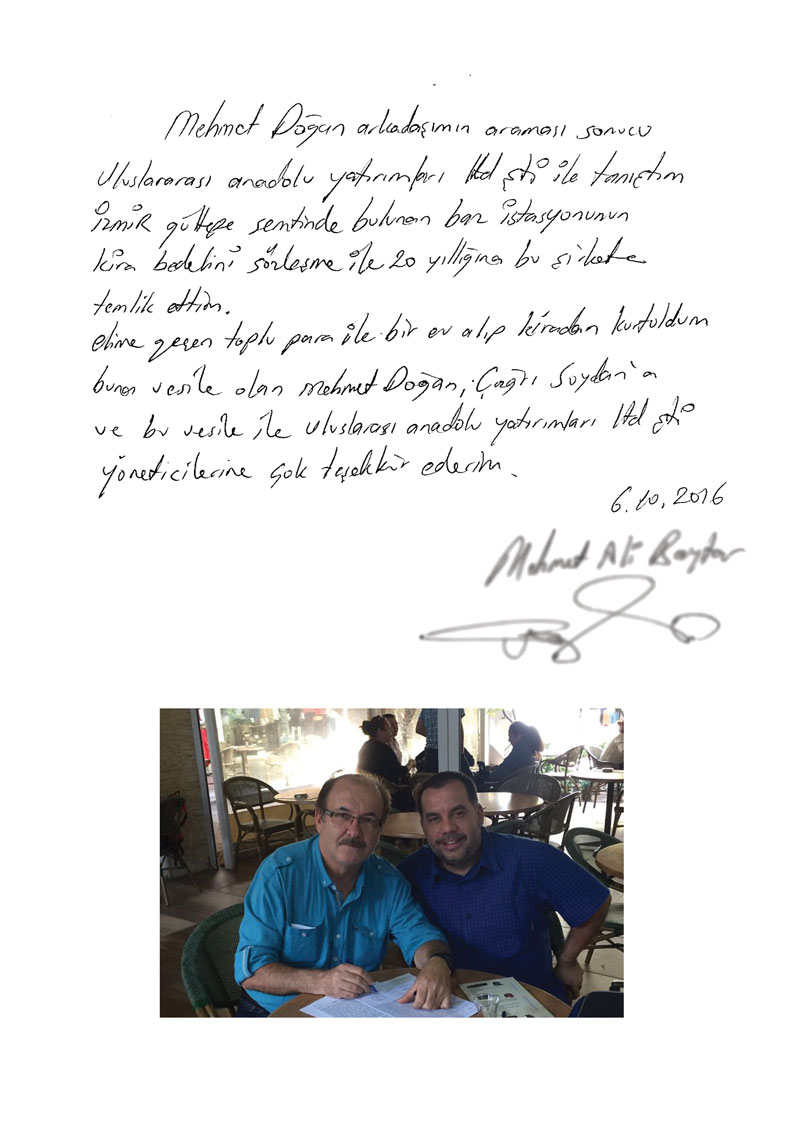 Mehmet Doğan arkadaşımın araması sonucu
Uluslararası anadolu yatırımları ltd şti ile tanıştım
İzmiR gültepe semtinde bulunan baz istasyonunun
kira bedelini sözleşme ile 20 yıllığına bu şirkete
temlik ettim.
elime geçen toplu para ile bir ev alıp kiradan kurtuldum
buna vesile olan Mehmet Doğan, Çağrı Soydan'a
ve bu vesile ile uluslarası anadolu yatırımları ltd şti
yöneticilerine çok teşekkür ederim.
6.10.2016
Mehmet Ali Baytar